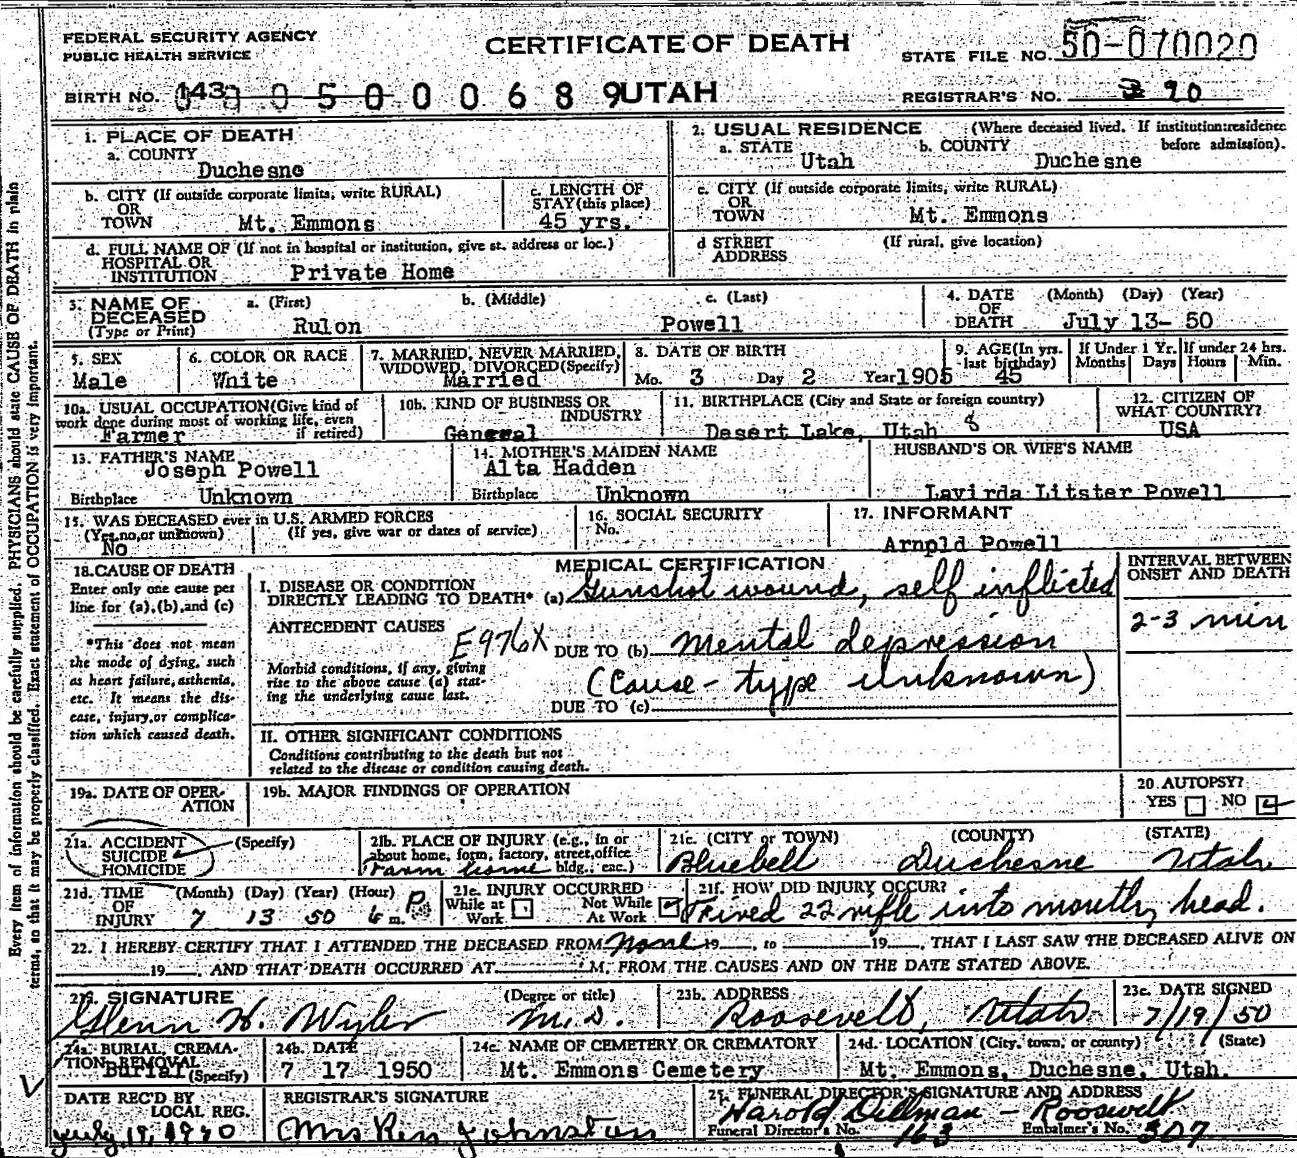 FEDERAL SECURITY AGENCY
PUBLIC HEALTH SERVICE
CERTIFICATE OF DEATH
STATE FILE NO. 50-070020
BIRTH NO. 143 0 5 0 0 0 6 8 9 UTAH
REGISTRAR'S NO. 90
1. PLACE OF DEATH
a. COUNTY
Duchesne
2. USUAL RESIDENCE (Where deceased lived. If institution:residence before admission).
a. STATE Utah b. COUNTY Duchesne
b. CITY (If outside corporate limits, write RURAL)
OR
TOWN Mt. Emmons
c. LENGTH OF
STAY(this place)
45 yrs.
c. CITY (If outside corporate limits, write RURAL)
OR
TOWN Mt. Emmons
d. FULL NAME OF (If not in hospital or institution, give st. address or loc.)
HOSPITAL OR
INSTITUTION Private Home
d STREET (If rural, give location)
ADDRESS
3. NAME OF DECEASED
(Type or Print)
a. (First) b. (Middle) c. (Last)
Rulon Powell
4. DATE OF DEATH (Month) (Day) (Year)
July 13- 50
5. SEX
Male
6. COLOR OR RACE
White
7. MARRIED, NEVER MARRIED,
WIDOWED, DIVORCED(Specify)
Married
8. DATE OF BIRTH
Mo. 3 Day 2 Year 1905
9. AGE(In yrs.
last birthday)
45
If Under 1 Yr.
Months Days
If under 24 hrs.
Hours Min.
10a. USUAL OCCUPATION(Give kind of
work done during most of working life, even
if retired)
Farmer
10b. KIND OF BUSINESS OR
INDUSTRY
General
11. BIRTHPLACE (City and State or foreign country)
Desert Lake, Utah 8
12. CITIZEN OF
WHAT COUNTRY?
USA
13. FATHER'S NAME
Joseph Powell
Birthplace Unknown
14. MOTHER'S MAIDEN NAME
Alta Hadden
Birthplace Unknown
HUSBAND'S OR WIFE'S NAME
Lavirda Litster Powell
15. WAS DECEASED ever in U.S. ARMED FORCES
(Yes,no,or unknown) (If yes, give war or dates of service)
No
16. SOCIAL SECURITY
No.
17. INFORMANT
Arnold Powell
18. CAUSE OF DEATH
Enter only one cause per
line for (a), (b), and (c)
*This does not mean
the mode of dying, such
as heart failure, asthenia,
etc. It means the dis-
ease, injury, or complica-
tion which caused death.
MEDICAL CERTIFICATION
I. DISEASE OR CONDITION
DIRECTLY LEADING TO DEATH* (a) Gunshot wound, self inflicted
ANTECEDENT CAUSES E976X
DUE TO (b) Mental depression
Morbid conditions, if any, giving
rise to the above cause (a) stat-
ing the underlying cause last.
(Cause - type Unknown)
DUE TO (c)
INTERVAL BETWEEN
ONSET AND DEATH
2-3 min
II. OTHER SIGNIFICANT CONDITIONS
Conditions contributing to the death but not
related to the disease or condition causing death.
19a. DATE OF OPER-
ATION
19b. MAJOR FINDINGS OF OPERATION
20 AUTOPSY?
YES NO
21a. ACCIDENT
SUICIDE
HOMICIDE
(Specify)
21b. PLACE OF INJURY (e.g., in or
about home, form, factory, street, office
bldg., etc.)
Farm home
21c. (CITY or TOWN) (COUNTY) (STATE)
Bluebell Duchesne Utah
21d. TIME OF INJURY
(Month) (Day) (Year) (Hour)
7 13 50 6 P. m.
21e. INJURY OCCURRED
While at Work Not While At Work
21f. HOW DID INJURY OCCUR?
Fired 22 rifle into mouth, head.
22. I HEREBY CERTIFY THAT I ATTENDED THE DECEASED FROM None 19__, to 19__, THAT I LAST SAW THE DECEASED ALIVE ON
19__. AND THAT DEATH OCCURRED AT M. FROM THE CAUSES AND ON THE DATE STATED ABOVE.
23a. SIGNATURE (Degree or title)
Glenn H. Wyler M.D.
23b. ADDRESS
Roosevelt, Utah
23c. DATE SIGNED
7/19/50
24a. BURIAL, CREMA-
TION REMOVAL
Burial (Specify)
24b. DATE
7 17 1950
24c. NAME OF CEMETERY OR CREMATORY
Mt. Emmons Cemetery
24d. LOCATION (City, town, or county) (State)
Mt. Emmons, Duchesne, Utah.
DATE REC'D BY
LOCAL REG.
REGISTRAR'S SIGNATURE
Mrs Johnston
25. FUNERAL DIRECTOR'S SIGNATURE AND ADDRESS
Harold Dillman - Roosevelt
Funeral Director's No. 163 Embalmer's No. 307
Every item of information should be carefully supplied. PHYSICIANS should state CAUSE OF DEATH in plain
terms, so that it may be properly classified. Exact statement of OCCUPATION is very important.